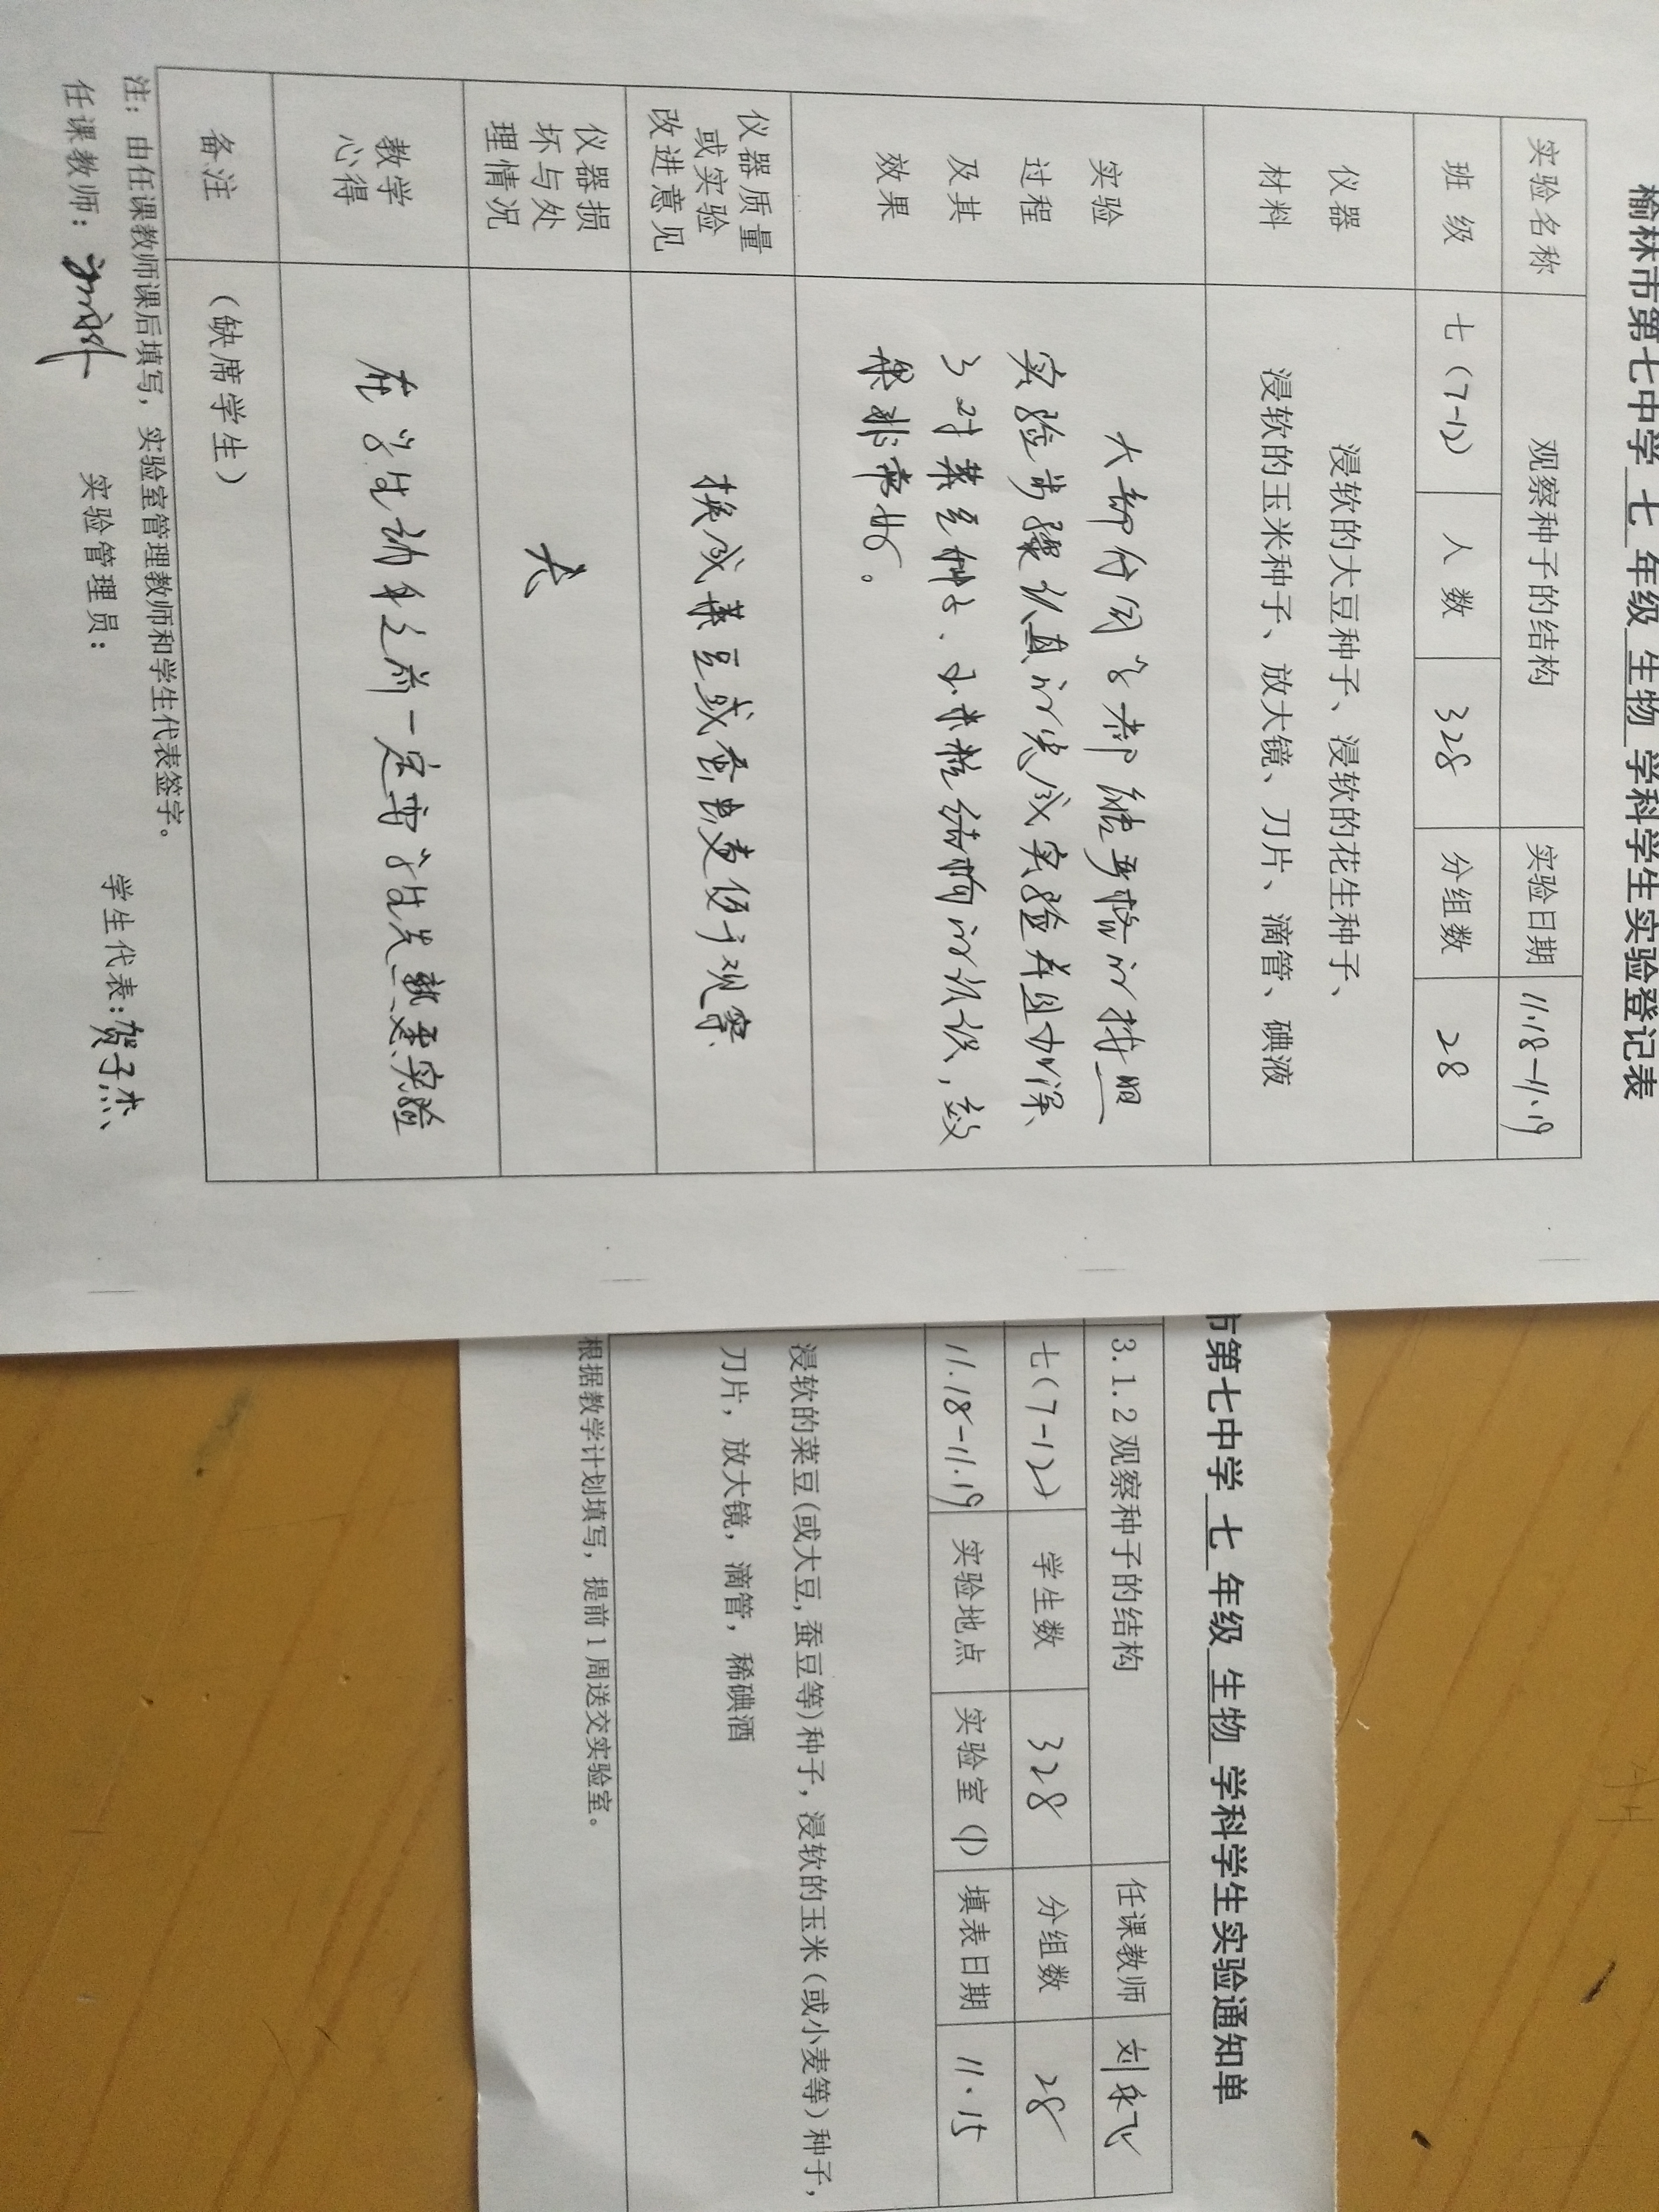 榆林市第七中学 七 年级 生物 学科学生实验登记表
实验名称 观察种子的结构 实验日期 11.18-11.19
班 级 七(7-12) 人 数 328 分组数 28
仪器
材料
浸软的大豆种子、浸软的花生种子、
浸软的玉米种子、放大镜、刀片、滴管、碘液
实验
过程
及其
效果
大部分同学都能严格的按照
实验步骤认真的完成实验并且加深
了对菜豆种子、玉米粒结构的认识,效
果非常好。
仪器质量
或实验
改进意见
换成菜豆或蚕豆更便于观察
仪器损
坏与处
理情况
无
教学
心得
在学生动手之前一定要让学生先熟悉实验
备注
(缺席学生)
注:由任课教师课后填写,实验室管理教师和学生代表签字。
任课教师: 实验管理员: 学生代表:贺子杰
市第七中学 七 年级 生物 学科学生实验通知单
3.1.2观察种子的结构 任课教师 刘
七(7-12) 学生数 328 分组数 28
11.18-11.19 实验地点 实验室(1) 填表日期 11.15
浸软的菜豆(或大豆,蚕豆等)种子,浸软的玉米(或小麦等)种子,
刀片,放大镜,滴管,稀碘酒
根据教学计划填写,提前1周送交实验室。